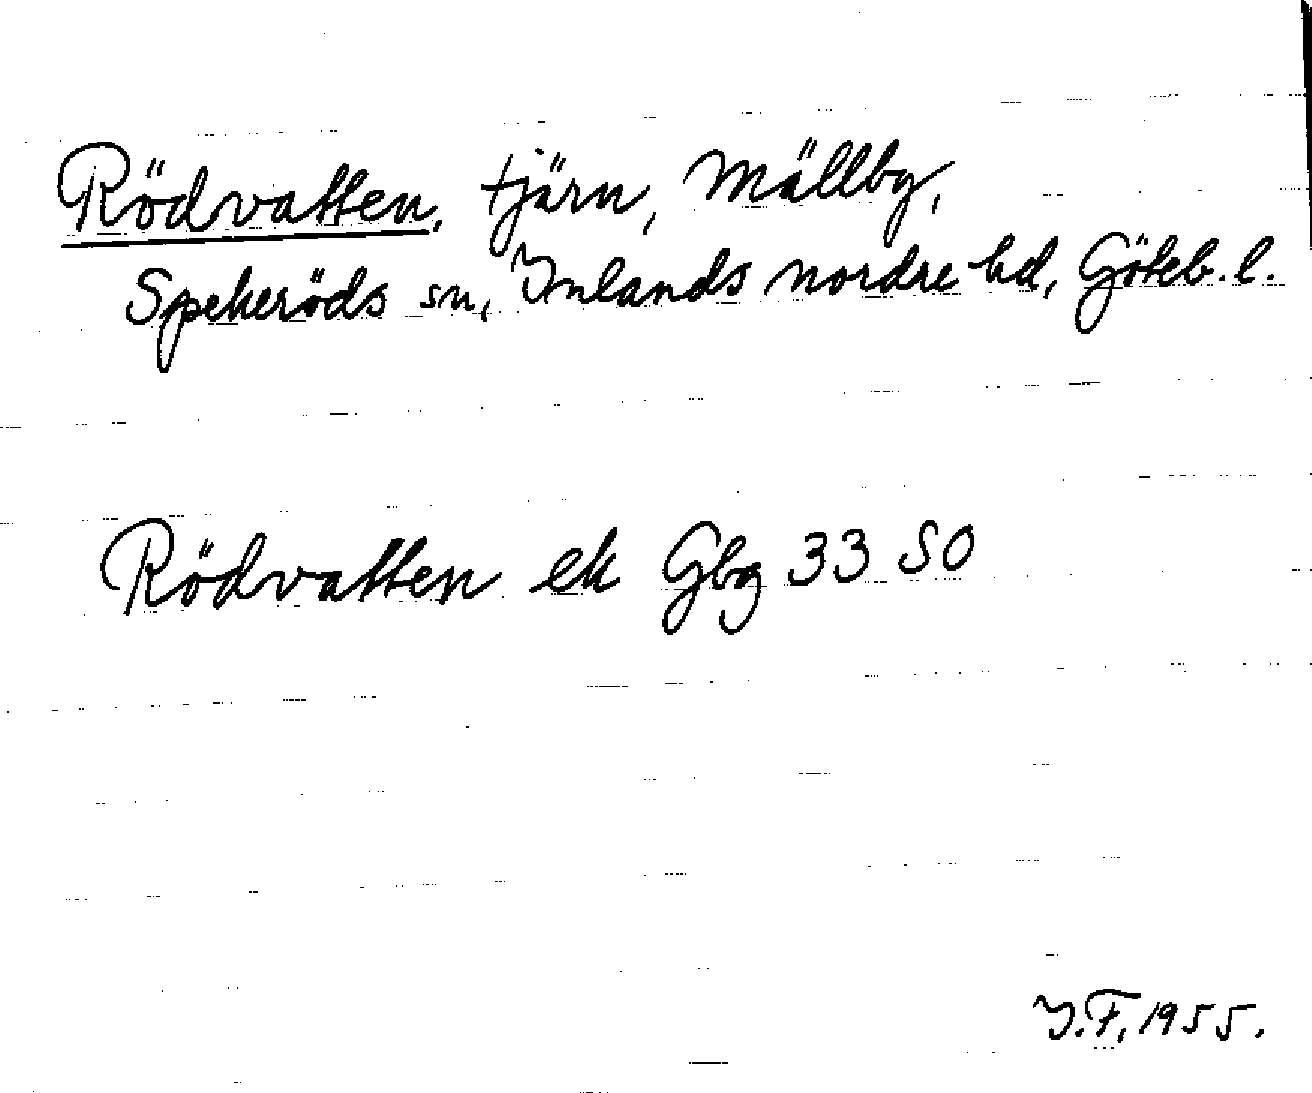 Rödvatten, tjärn, Mällby,
Spekeröds sn, Inlands nordre hd, Göteb. l.
Rödvatten ek Gbg 33 SO
I.F. 1955.